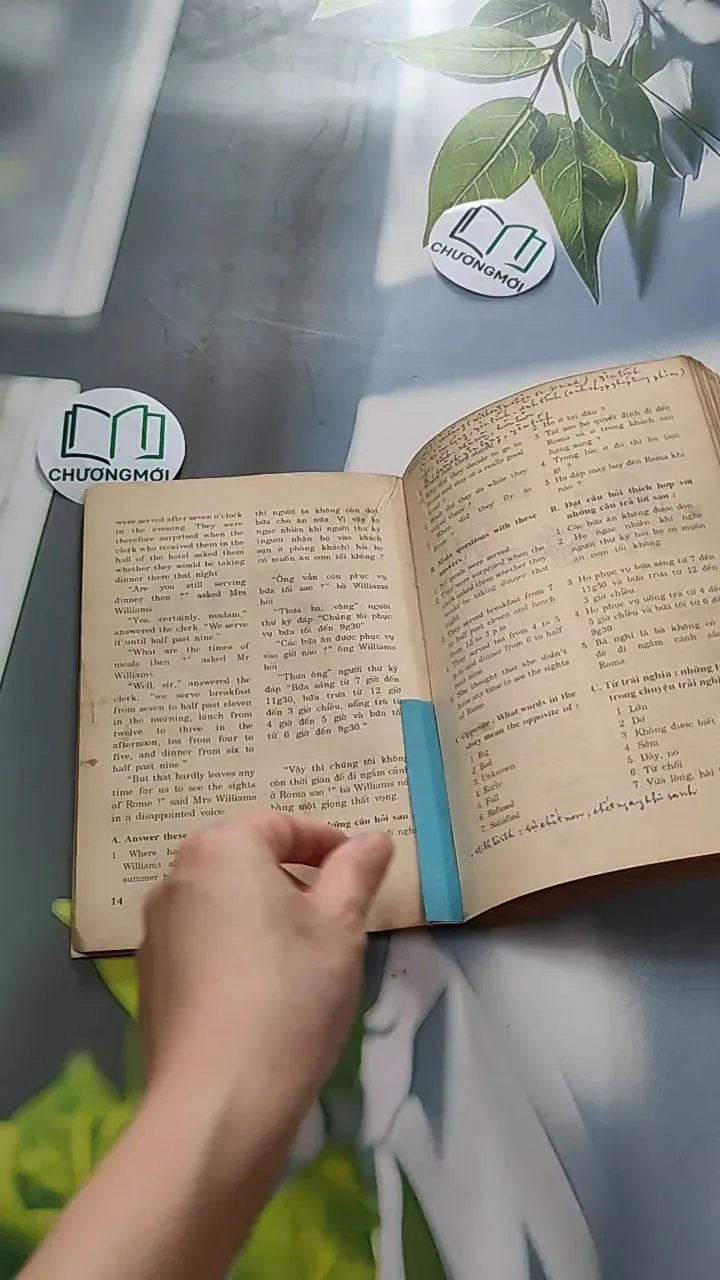 CHƯƠNGMỚI
CHƯƠNGMỚI
were served after seven o'clock
in the evening. They were
therefore surprised when the
clerk who received them in the
hall of the hotel asked them
whether they would be taking
dinner there that night.
"Are you still serving
dinner then ?" asked Mrs
Williams
"Yes, certainly, madam,"
answered the clerk. "We serve
it until half past nine."
"What are the times of
meals then ?" asked Mr
Williams.
"Well, sir," answered the
clerk, "we serve breakfast
from seven to half past eleven
in the morning, lunch from
twelve to three in the
afternoon, tea from four to
five, and dinner from six to
half past nine."
"But that hardly leaves any
time for us to see the sights
of Rome !" said Mrs Williams
in a disappointed voice.
A. Answer these
1 Where
Williams
summer
14
thì người ta không còn dọn
bữa cho ăn nữa Vì vậy họ
ngạc nhiên khi người thư ký
(người nhận họ vào khách
sạn ở phòng khách) hỏi họ
có muốn ăn cơm tối không ?
"Ông vẫn còn phục vụ
bữa tối sao ?" bà Williams
hỏi
"Thưa bà, vâng" người
thư ký đáp "Chúng tôi phục
vụ bữa tối đến 9g30"
"Các bữa ăn được phục vụ
vào giờ nào ?" ông Williams
hỏi :
"Thưa ông" người thư ký
đáp "Bữa sáng từ 7 giờ đến
11g30, bữa trưa từ 12 giờ
đến 3 giờ chiều, uống trà từ
4 giờ đến 5 giờ và bữa tối
từ 6 giờ đến 9g30."
"Vậy thì chúng tôi không
còn thời gian để đi ngắm cảnh
ở Roma sao !" bà Williams
bằng một giọng thất vọng.
những câu hỏi sau
đi
decide to go to
and stay at a really good
do while they
did they fly to
Rome ?
B. Make questions with these
answers :
meals were served.
They were surprised when the
clerk asked them whether they
would be taking dinner that
They served breakfast from 7
to half past eleven and lunch
from 12 to 3 p.m
They served tea from 4 to 5
p.m and dinner from 6 to half
past nine
She thought that she didn't
have any time to see the sights
of Rome
C. Opposite : What words in the
story mean the opposite of :
1 Big
2 Bad
3 Unknown
4 Early
5 Full
6 Refused
7 Satisfied
2 Họ ở tại đâu ?
3 Tại sao họ quyết định đi đến
Roma và ở trong khách sạn
hạng sang ?
4 Trong lúc ở đó thì họ làm
gì ?
5 Họ đáp máy bay đến Roma khi
nào ?
B. Đặt câu hỏi thích hợp với
những câu trả lời sau :
1 Các bữa ăn không được dọn
2 Họ ngạc nhiên khi nghe
người thư ký hỏi họ có muốn
ăn cơm tối không
3 Họ phục vụ bữa sáng từ 7 đến
11g30 và bữa trưa từ 12 đến
3 giờ chiều
4 Họ phục vụ uống trà từ 4 đến
5 giờ chiều và bữa tối từ 6 đến
9g30
5 Bà nghĩ là bà không có
để đi ngắm cảnh
Roma
C. Từ trái nghĩa : những
trong chuyện trái
1 Lớn
2 Dở
3 Không được biết
4 Sớm
5 Đầy, no
6 Từ chối
7 Vừa lòng, hài